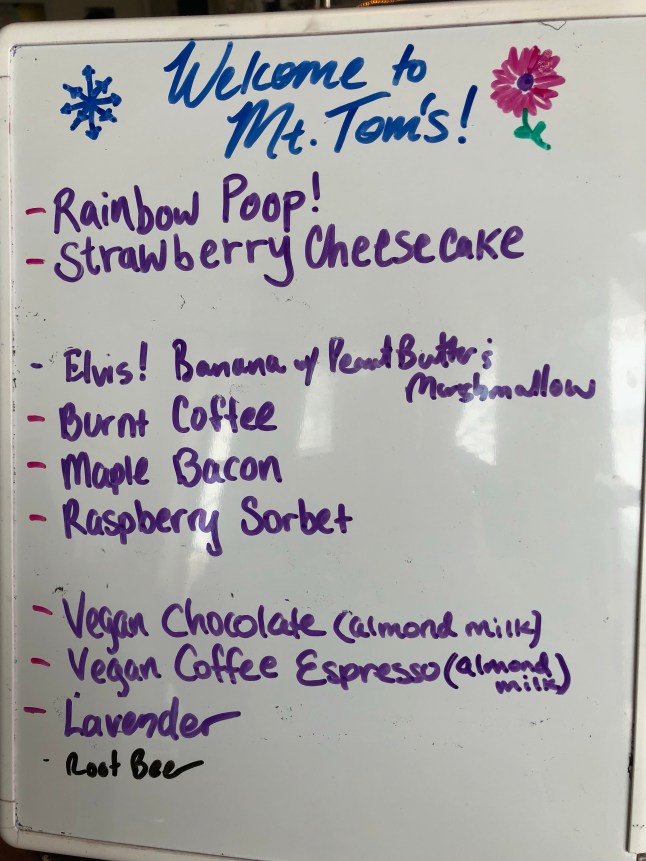 Welcome to
Mt. Tom's!
- Rainbow Poop!
- Strawberry Cheesecake
- Elvis! Banana w/ Peanut Butter &
Marshmallow
- Burnt Coffee
- Maple Bacon
- Raspberry Sorbet
- Vegan Chocolate (almond milk)
- Vegan Coffee Espresso (almond
milk)
- Lavender
- Root Beer